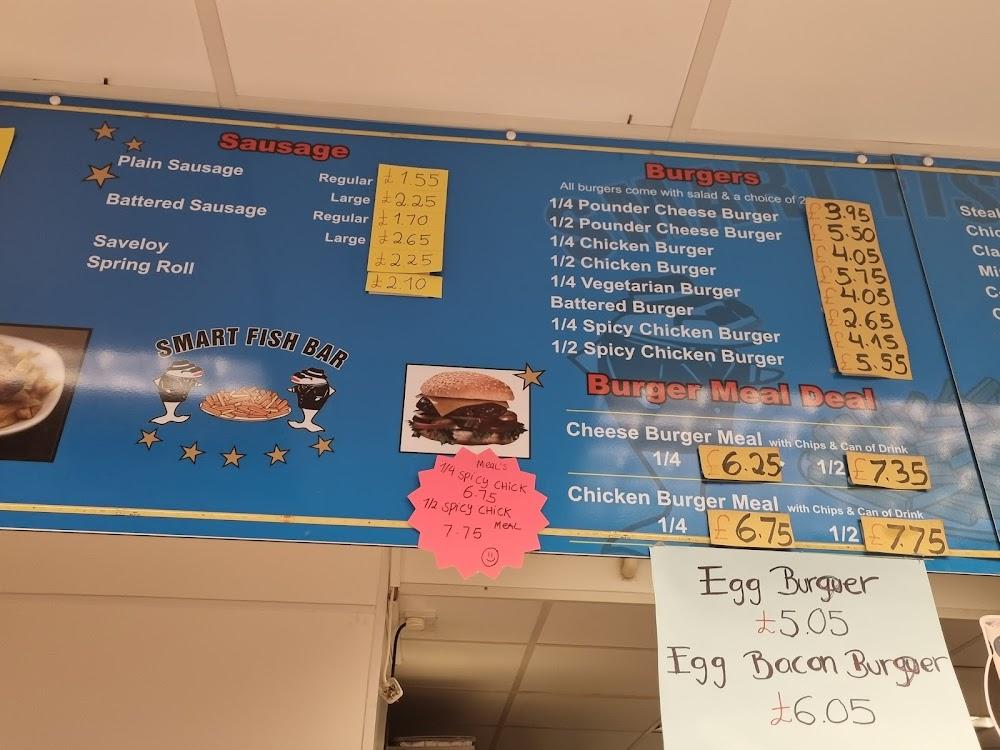 Sausage
Plain Sausage Regular £1.55
Large £2.25
Battered Sausage Regular £1.70
Large £2.65
Saveloy £2.25
Spring Roll £2.10
SMART FISH BAR
Burgers
All burgers come with salad & a choice of 2
1/4 Pounder Cheese Burger £3.95
1/2 Pounder Cheese Burger £5.50
1/4 Chicken Burger £4.05
1/2 Chicken Burger £5.75
1/4 Vegetarian Burger £4.05
Battered Burger £2.65
1/4 Spicy Chicken Burger £4.15
1/2 Spicy Chicken Burger £5.55
Burger Meal Deal
Cheese Burger Meal with Chips & Can of Drink
1/4 £6.25 1/2 £7.35
Chicken Burger Meal with Chips & Can of Drink
1/4 £6.75 1/2 £7.75
MEAL'S
1/4 SPICY CHICK
6.75
1/2 SPICY CHICK
MEAL
7.75
Egg Burguer
£5.05
Egg Bacon Burguer
£6.05